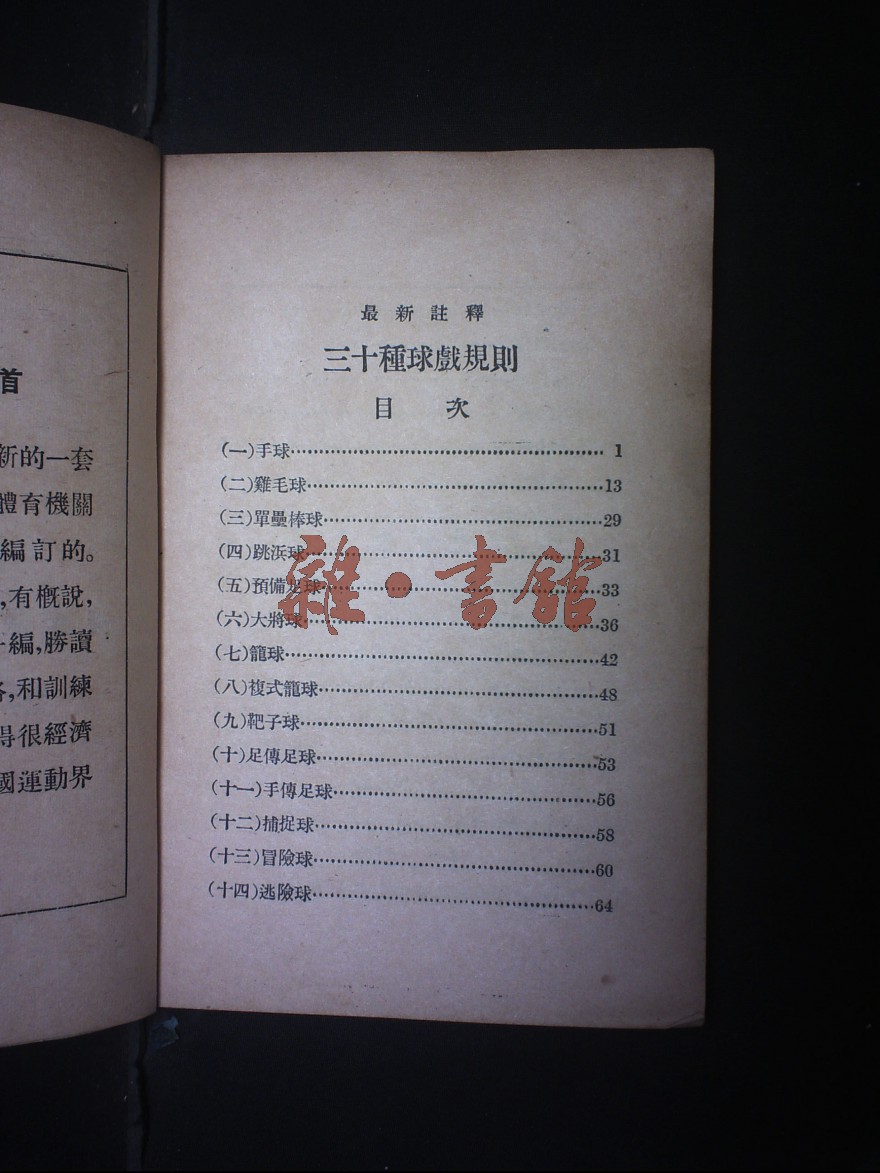 最新註釋
三十種球戲規則
目次
(一)手球……1
(二)雞毛球……13
(三)單壘棒球……29
(四)跳浜球……31
(五)預備足球……33
(六)大將球……36
(七)籠球……42
(八)複式籠球……48
(九)靶子球……51
(十)足傳足球……53
(十一)手傳足球……56
(十二)捕捉球……58
(十三)冒險球……60
(十四)逃險球……64
雜·書館
首
新的一套
體育機關
編訂的。
,有概說,
編,勝讀
,和訓練
得很經濟
國運動界